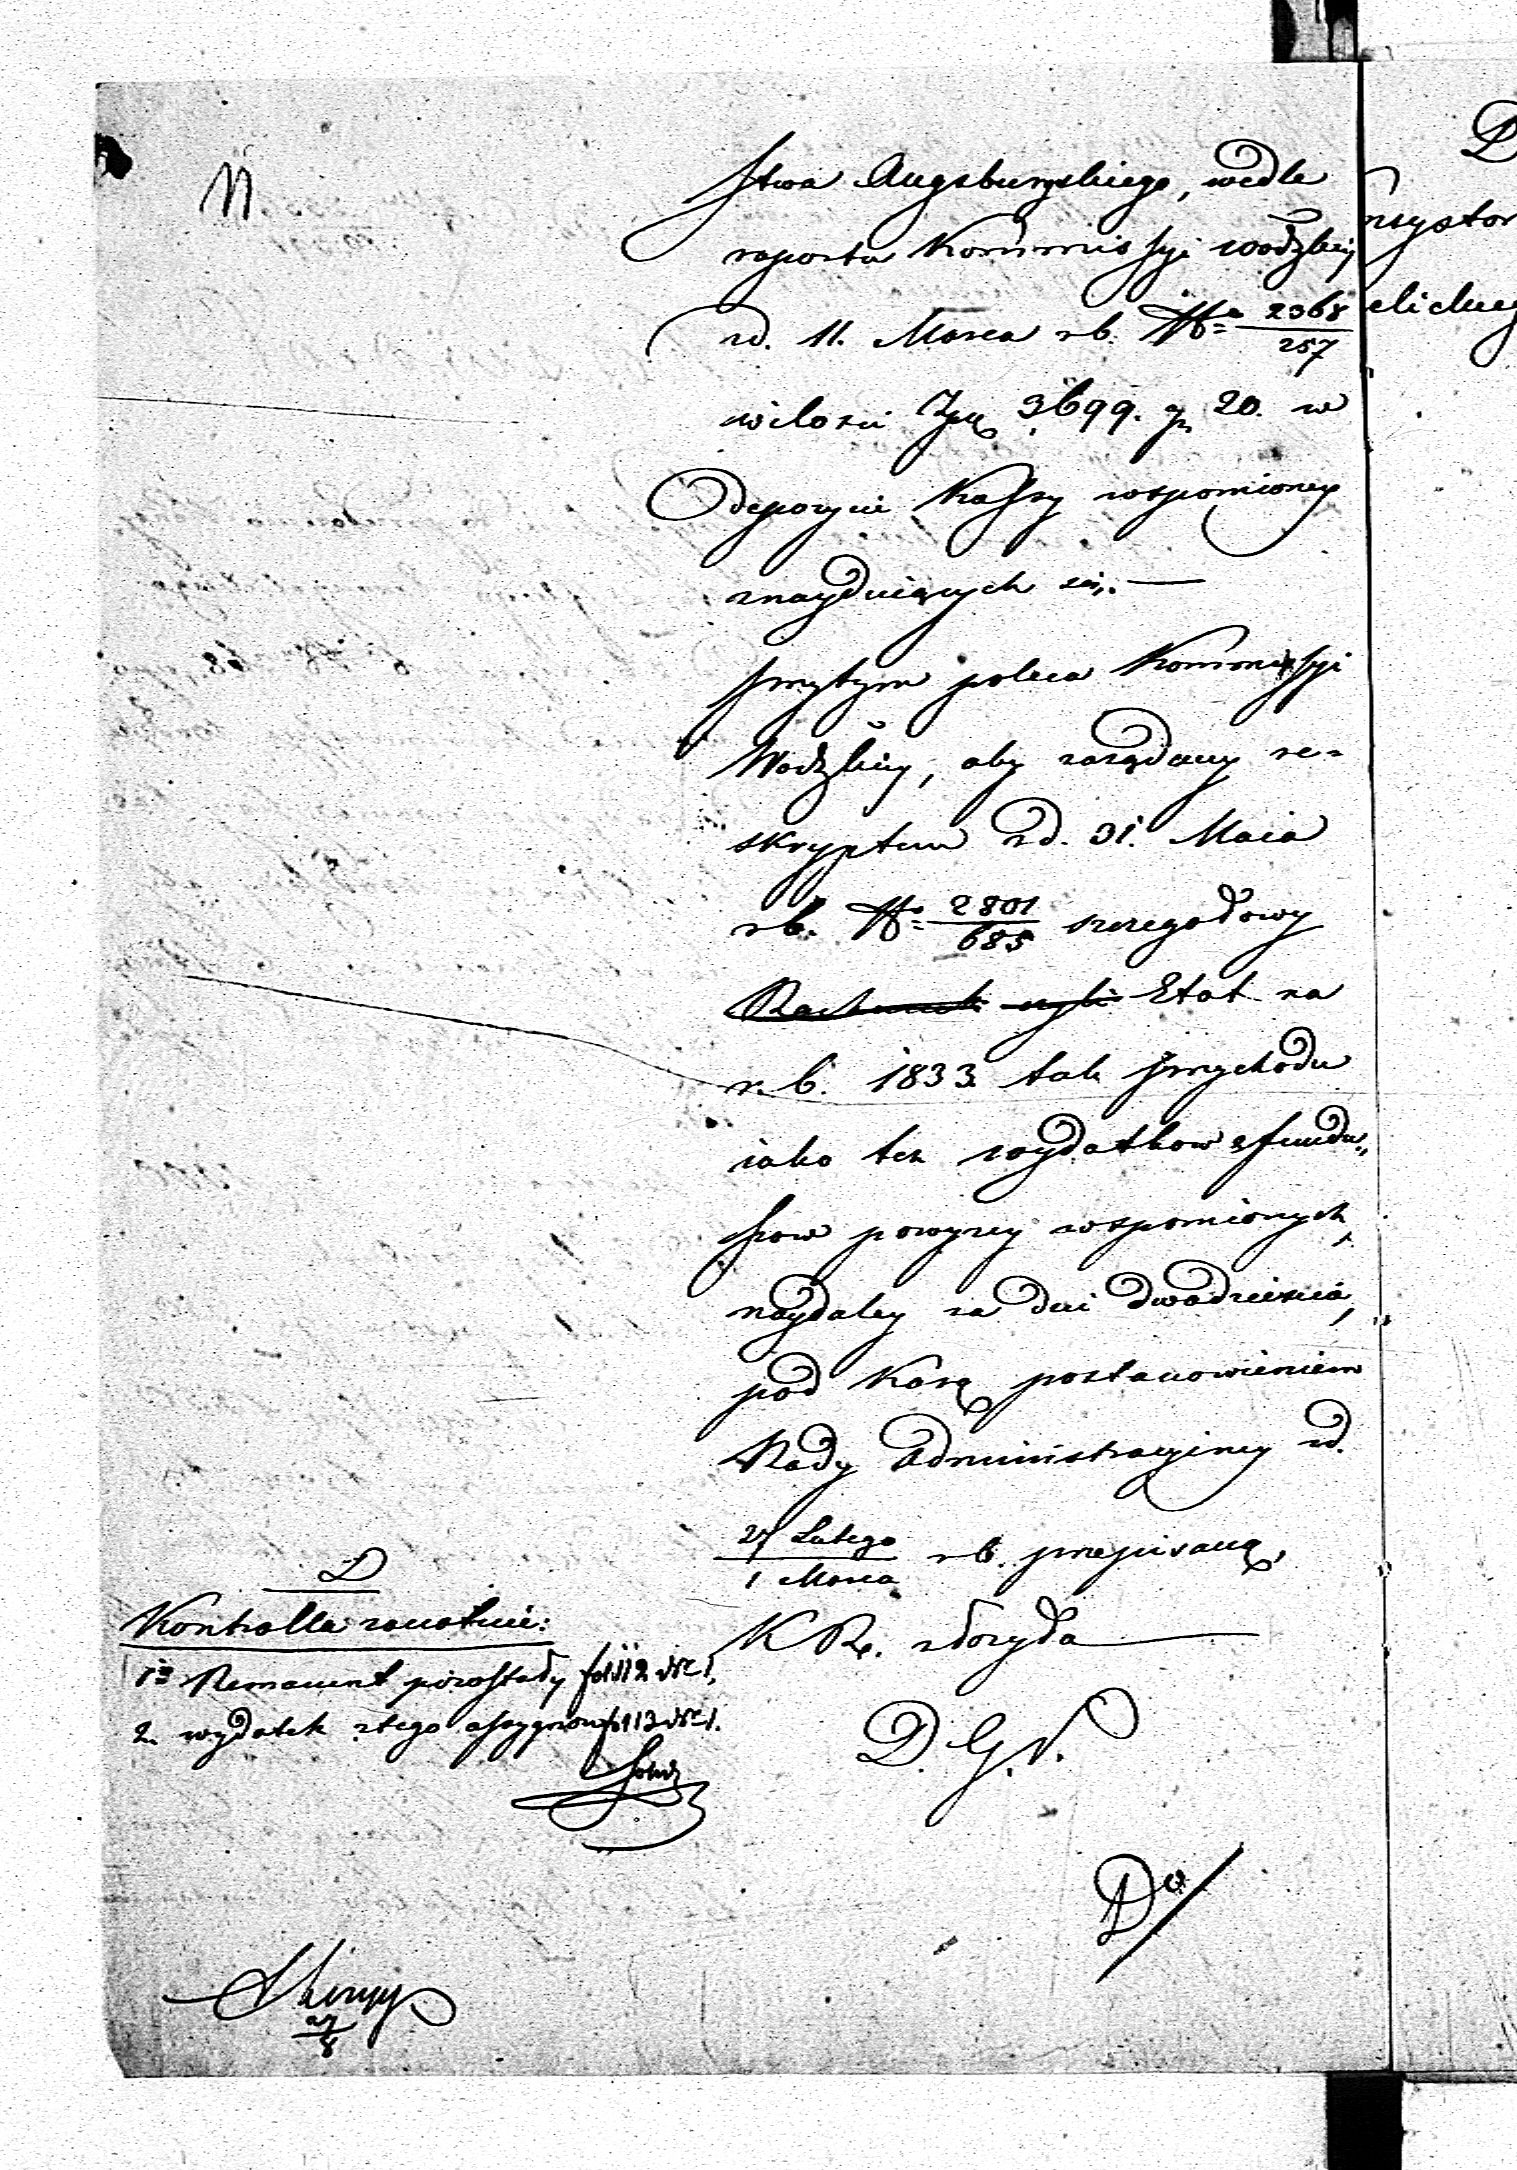 stwa Augsburgskiego, wedle
raportu Kommissyi wodzkiey
zd. 11. Marca rb. No 2368/257
w ilości Złp 3699. gr 20. w
depozycie Kassy wspomnioney
znayduiących się. —
przytym poleca Kommissyi
Wodzkiey, aby zażądany re=
skryptem zd. 31. Maia
rb. No 2801/685 szczegółowy
Rachunek czyli Etat na
r. b. 1833 tak przychodu
iako też wydatkow z fundu„
szow powyżey wspomionych,
naydaley za dni dwadzieścia,
pod Karą postanowieniem
Rady Administracyiney zd.
27 Lutego / 1 Marca rb. przepisaną,
K Rz. złożyła —
D. G. N.
D
Kontrolla zanotuie:
1o Remanent pozostały fol 112 Nr 1,
2. wydatek z tego assygnow fol 113 Nr 1.
27/8